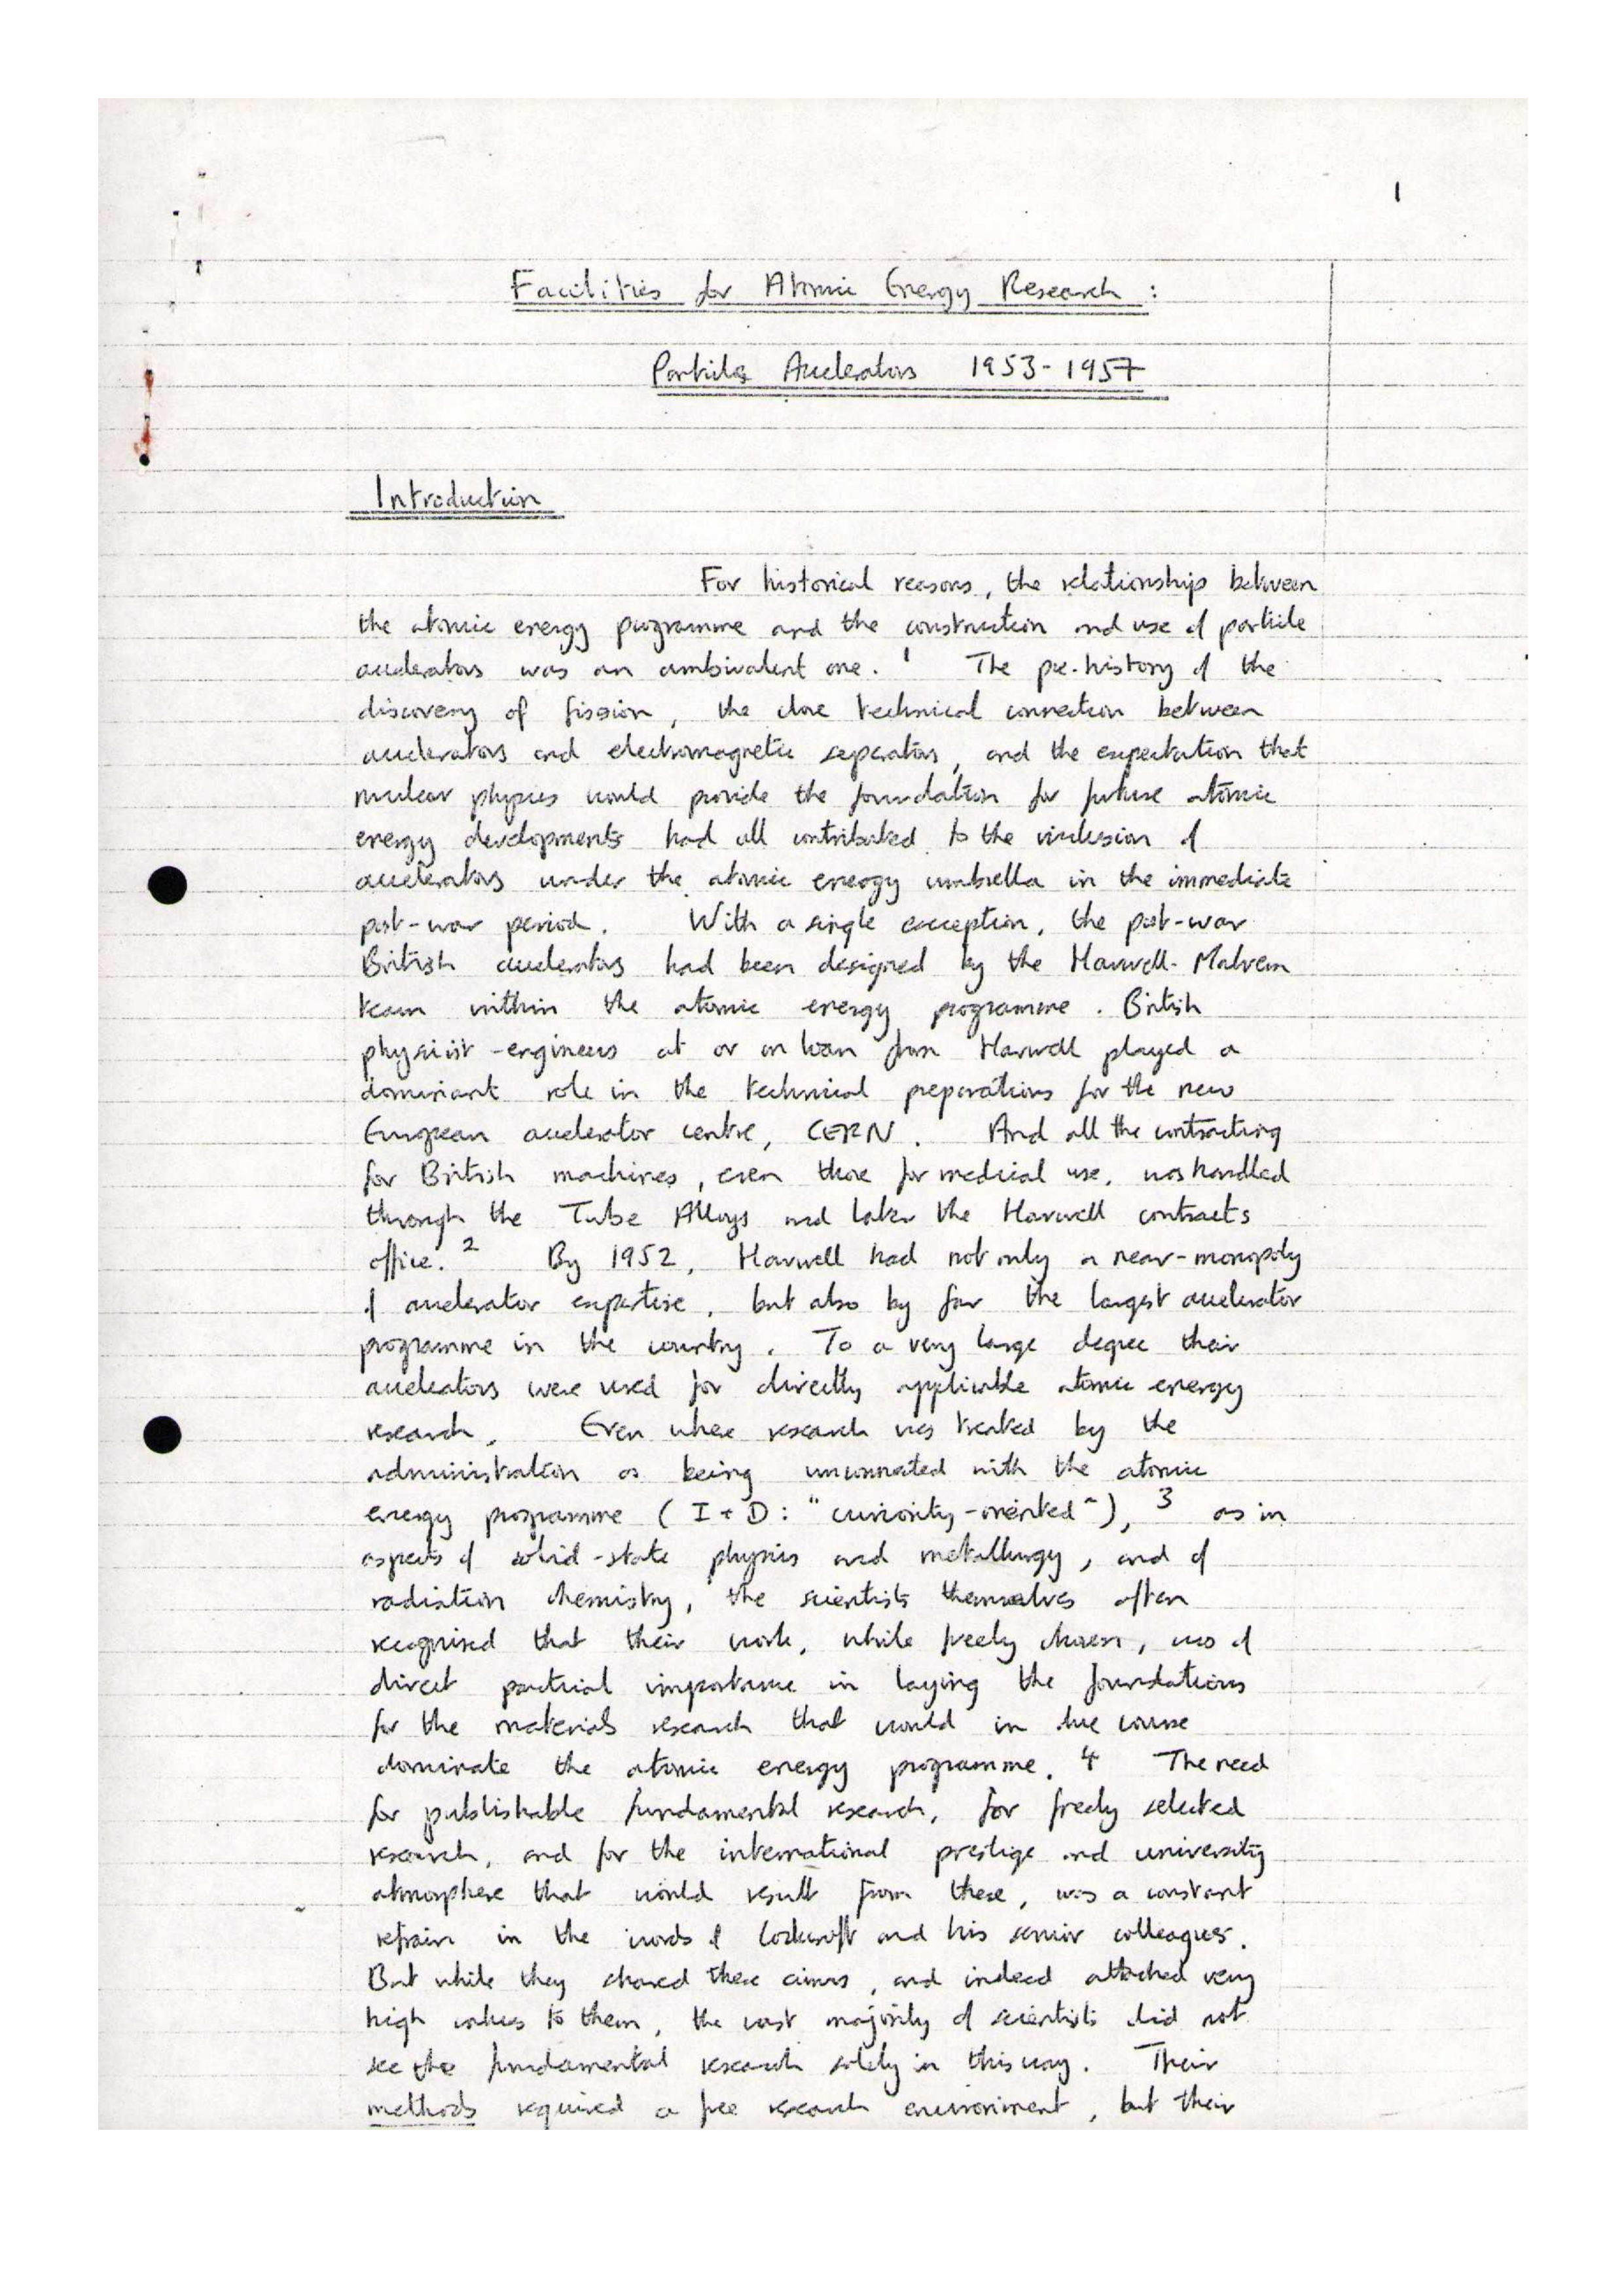 1
Facilities for Atomic Energy Research :
Particle Accelerators 1953-1957
Introduction
For historical reasons, the relationship between
the atomic energy programme and the construction and use of particle
accelerators was an ambivalent one. 1 The pre-history of the
discovery of fission, the close technical connection between
accelerators and electromagnetic separators, and the expectation that
nuclear physics would provide the foundation for future atomic
energy developments had all contributed to the inclusion of
accelerators under the atomic energy umbrella in the immediate
post-war period. With a single exception, the post-war
British accelerators had been designed by the Harwell-Malvern
team within the atomic energy programme. British
physicist-engineers at or on loan from Harwell played a
dominant role in the technical preparations for the new
European accelerator centre, CERN. And all the contracting
for British machines, even those for medical use, was handled
through the Tube Alloys and later the Harwell contracts
office. 2 By 1952, Harwell had not only a near-monopoly
of accelerator expertise, but also by far the largest accelerator
programme in the country. To a very large degree their
accelerators were used for directly applicable atomic energy
research. Even where research was treated by the
administration as being unconnected with the atomic
energy programme (I + D : "curiosity-oriented"), 3 as in
aspects of solid-state physics and metallurgy, and of
radiation chemistry, the scientists themselves often
recognised that their work, while freely chosen, was of
direct practical importance in laying the foundations
for the materials research that would in due course
dominate the atomic energy programme. 4 The need
for publishable fundamental research, for freely selected
research, and for the international prestige and university
atmosphere that would result from these, was a constant
refrain in the words of Cockcroft and his senior colleagues.
But while they shared these aims, and indeed attached very
high values to them, the vast majority of scientists did not
see the fundamental research solely in this way. Their
methods required a free research environment, but their